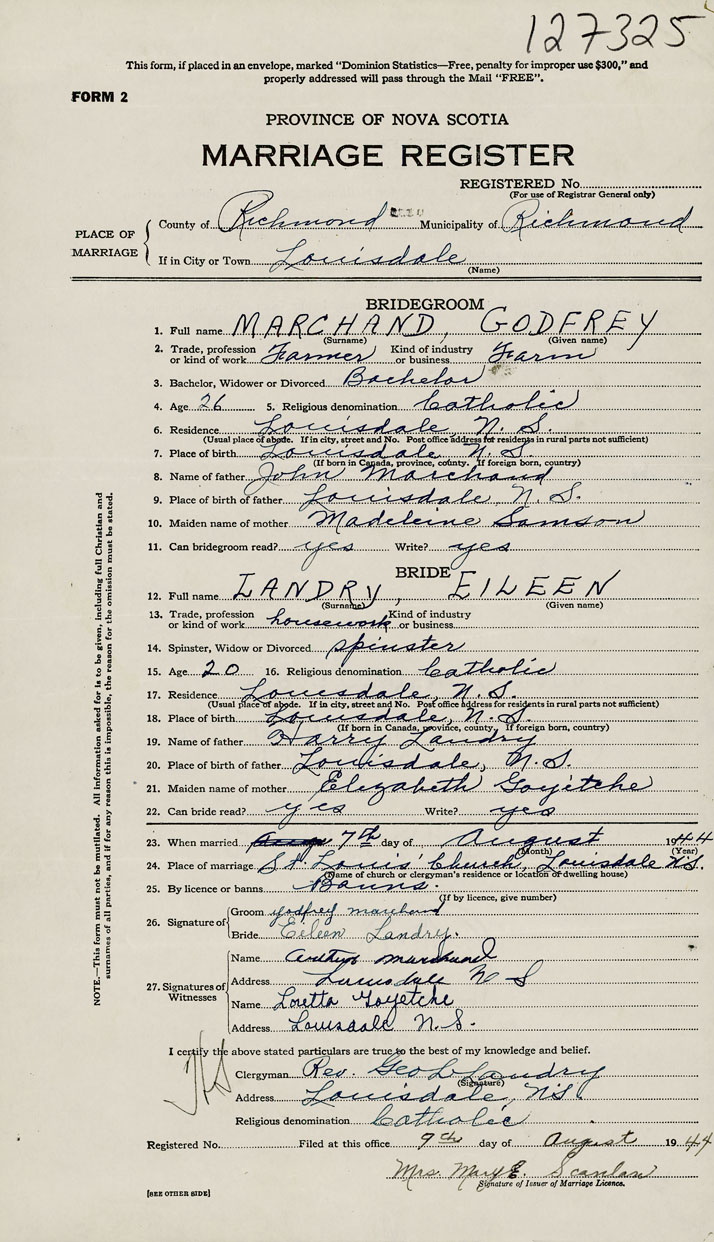 127325
This form, if placed in an envelope, marked "Dominion Statistics—Free, penalty for improper use $300," and
properly addressed will pass through the Mail "FREE".
FORM 2
PROVINCE OF NOVA SCOTIA
MARRIAGE REGISTER
REGISTERED No.
(For use of Registrar General only)
PLACE OF MARRIAGE
County of Richmond Municipality of Richmond
If in City or Town Louisdale
(Name)
BRIDEGROOM
1. Full name MARCHAND, GODFREY
(Surname) (Given name)
2. Trade, profession or kind of work Farmer Kind of industry or business Farm
3. Bachelor, Widower or Divorced Bachelor
4. Age 26 5. Religious denomination Catholic
6. Residence Louisdale, N.S.
(Usual place of abode. If in city, street and No. Post office address for residents in rural parts not sufficient)
7. Place of birth Louisdale N.S.
(If born in Canada, province, county. If foreign born, country)
8. Name of father John Marchand
9. Place of birth of father Louisdale, N.S.
10. Maiden name of mother Madeleine Samson
11. Can bridegroom read? yes Write? yes
BRIDE
12. Full name LANDRY, EILEEN
(Surname) (Given name)
13. Trade, profession or kind of work housework Kind of industry or business
14. Spinster, Widow or Divorced spinster
15. Age 20 16. Religious denomination Catholic
17. Residence Louisdale, N.S.
(Usual place of abode. If in city, street and No. Post office address for residents in rural parts not sufficient)
18. Place of birth Louisdale, N.S.
(If born in Canada, province, county, If foreign born, country)
19. Name of father Harry Landry
20. Place of birth of father Louisdale, N.S.
21. Maiden name of mother Elizabeth Goyetche
22. Can bride read? yes Write? yes
23. When married 7th day of August 1944
(Month) (Year)
24. Place of marriage St. Louis Church, Louisdale N.S.
(Name of church or clergyman's residence or location of dwelling house)
25. By licence or banns Banns.
(If by licence, give number)
26. Signature of
Groom godfrey marchand
Bride Eileen Landry.
27. Signatures of Witnesses
Name marchand
Address Louisdale N S
Name Loretta Goyetche
Address Louisdale N.S.
I certify the above stated particulars are true to the best of my knowledge and belief.
Clergyman Rev. Geo L Landry
(Signature)
Address Louisdale, N.S.
Religious denomination Catholic
Registered No. Filed at this office 9th day of August 1944
Mrs. Mary E. Scanlan
Signature of Issuer of Marriage Licence.
[SEE OTHER SIDE]
NOTE.—This form must not be mutilated. All information asked for is to be given, including full Christian and
surnames of all parties, and if for any reason this is impossible, the reason for the omission must be stated.